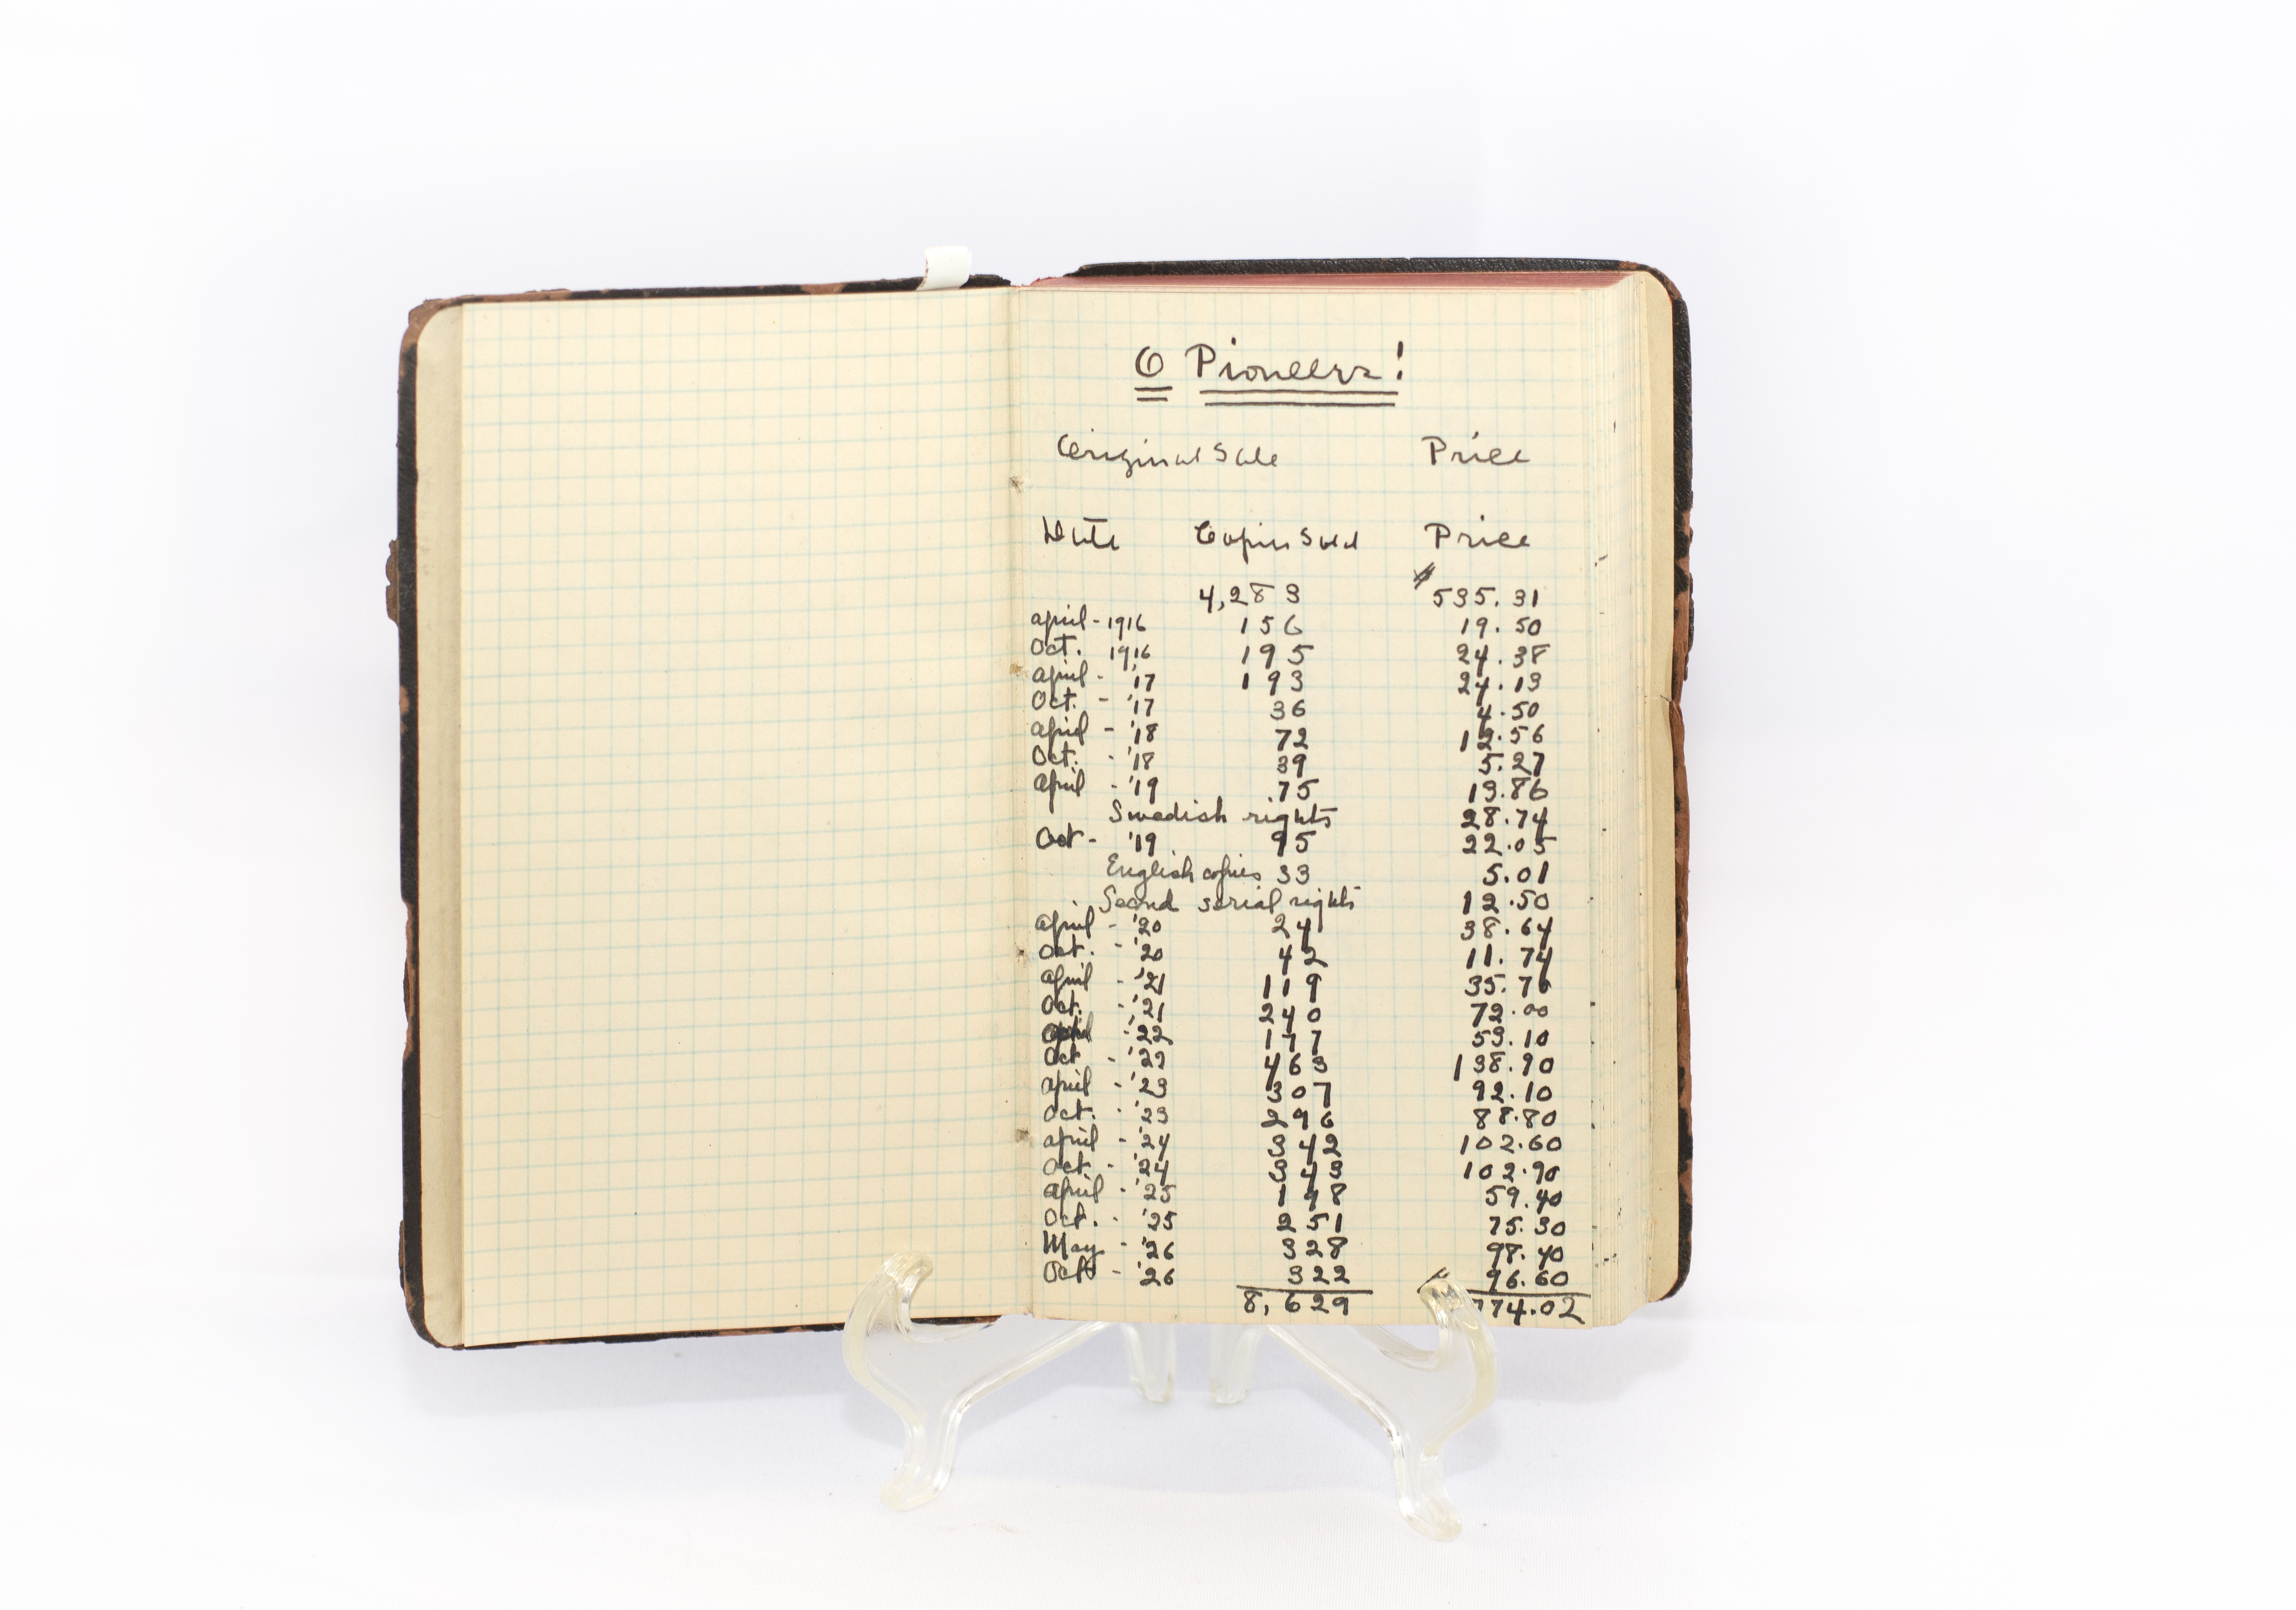 O Pioneers!
Original Sale Price
Date Copies Sold Price
4,283 $535.31
April - 1916 156 19.50
Oct. 1916 195 24.38
April - '17 193 24.13
Oct. - '17 36 4.50
April - '18 72 12.56
Oct. - '18 39 5.27
April - '19 75 13.86
Swedish rights 28.74
Oct - '19 95 22.05
English copies 33 5.01
Second serial rights 12.50
April - '20 24 38.64
Oct. - '20 42 11.74
April - '21 119 35.76
Oct. - '21 240 72.00
April - '22 53.10
Oct - '22 463 138.90
April - '23 307 92.10
Oct. - '23 296 88.80
April - '24 342 102.60
Oct - '24 343 102.90
April - '25 198 59.40
Oct. - '25 251 75.30
May - '26 328 98.40
Oct - '26 322 96.60
8,629 774.02